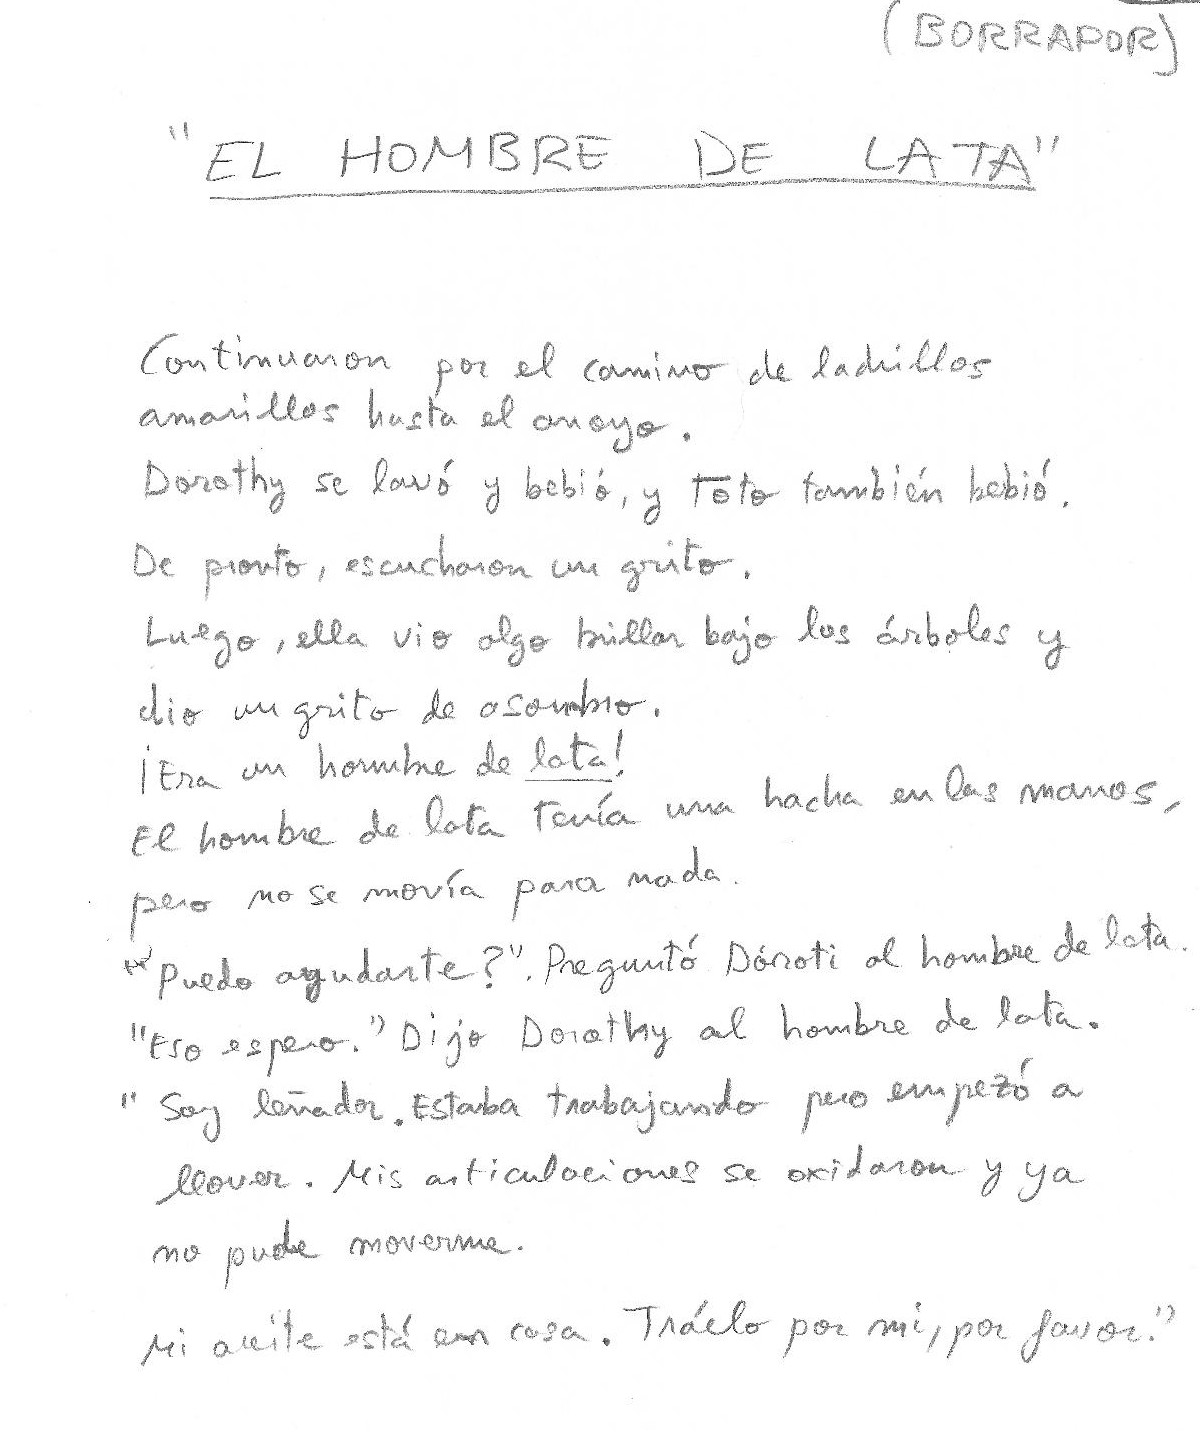 (BORRADOR)
"EL HOMBRE DE LATA"
Continuaron por el camino de ladrillos
amarillos hasta el arroyo.
Dorothy se lavó y bebió, y Toto también bebió.
De pronto, escucharon un grito.
Luego, ella vio algo brillar bajo los árboles y
dio un grito de asombro.
¡Era un hombre de lata!
El hombre de lata tenía una hacha en las manos,
pero no se movía para nada.
"Puedo ayudarte?". Preguntó Dóroti al hombre de lata.
"Eso espero." Dijo Dorothy al hombre de lata.
" Soy leñador. Estaba trabajando pero empezó a
llover. Mis articulaciones se oxidaron y ya
no pude moverme.
Mi aceite está en casa. Tráelo por mí, por favor."